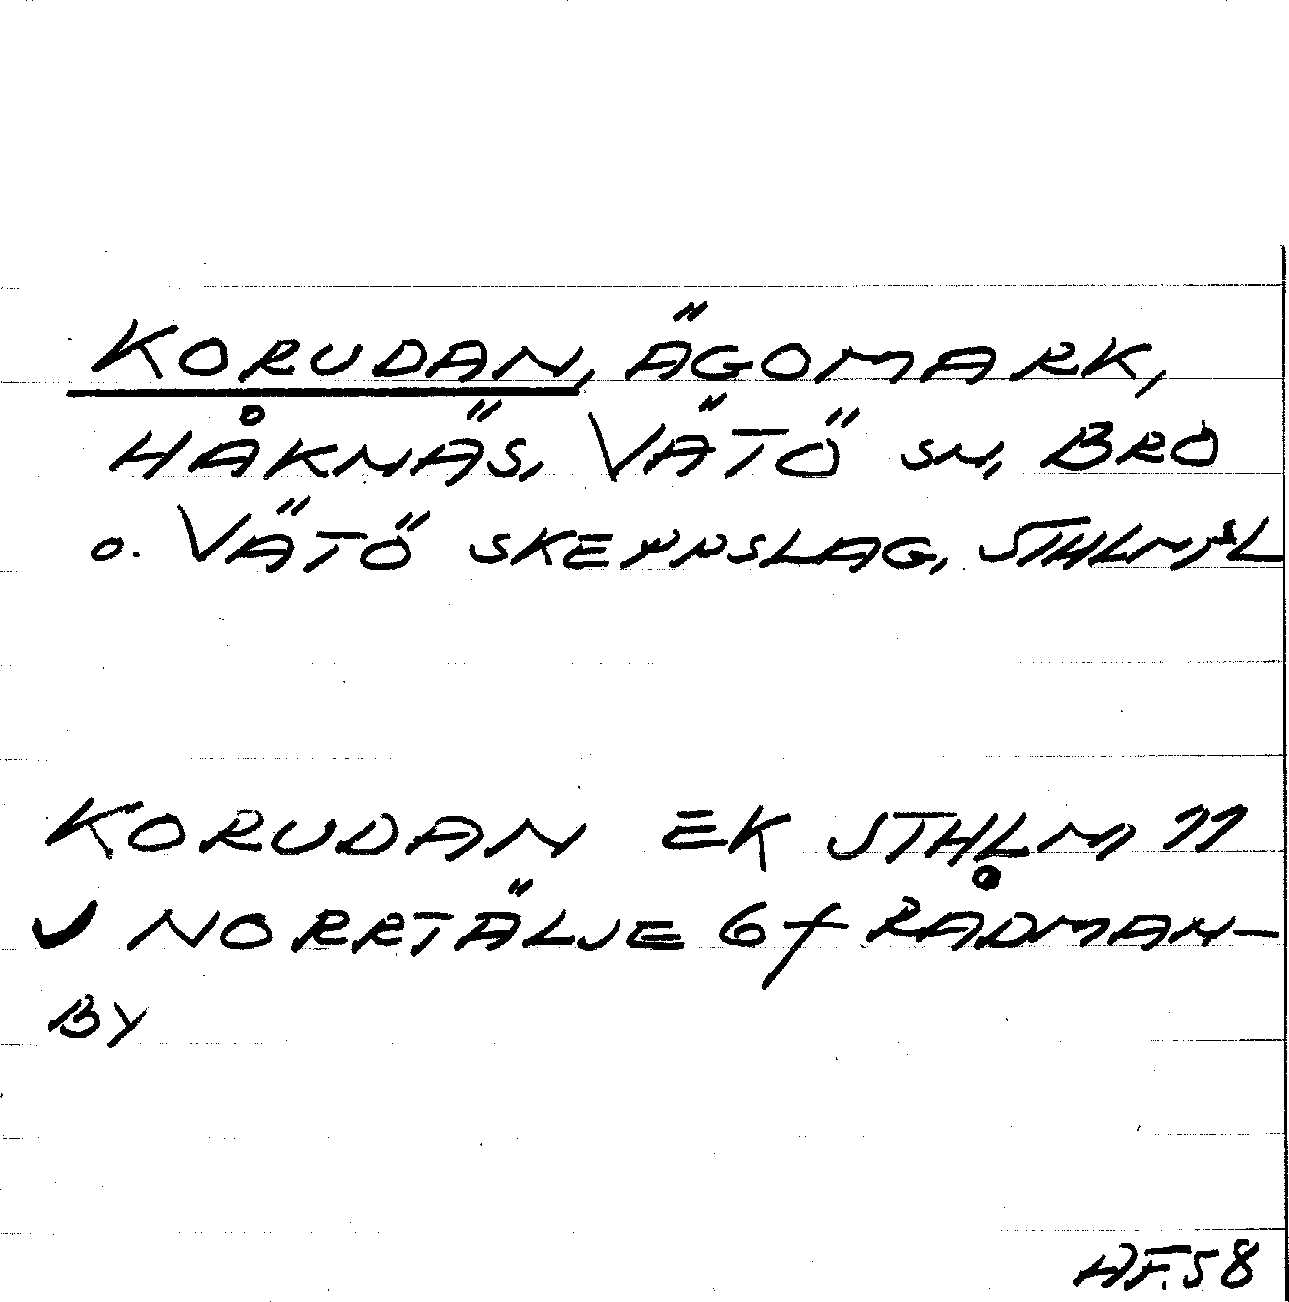 KORUDAN, ÄGOMARK,
HÅKNÄS, VÄTÖ SN, BRO
O. VÄTÖ SKEPPSLAG, STHLMS L
KORUDAN EK STHLM 11
NORRTÄLJE 6f RÅDMAN-
BY
AF.58